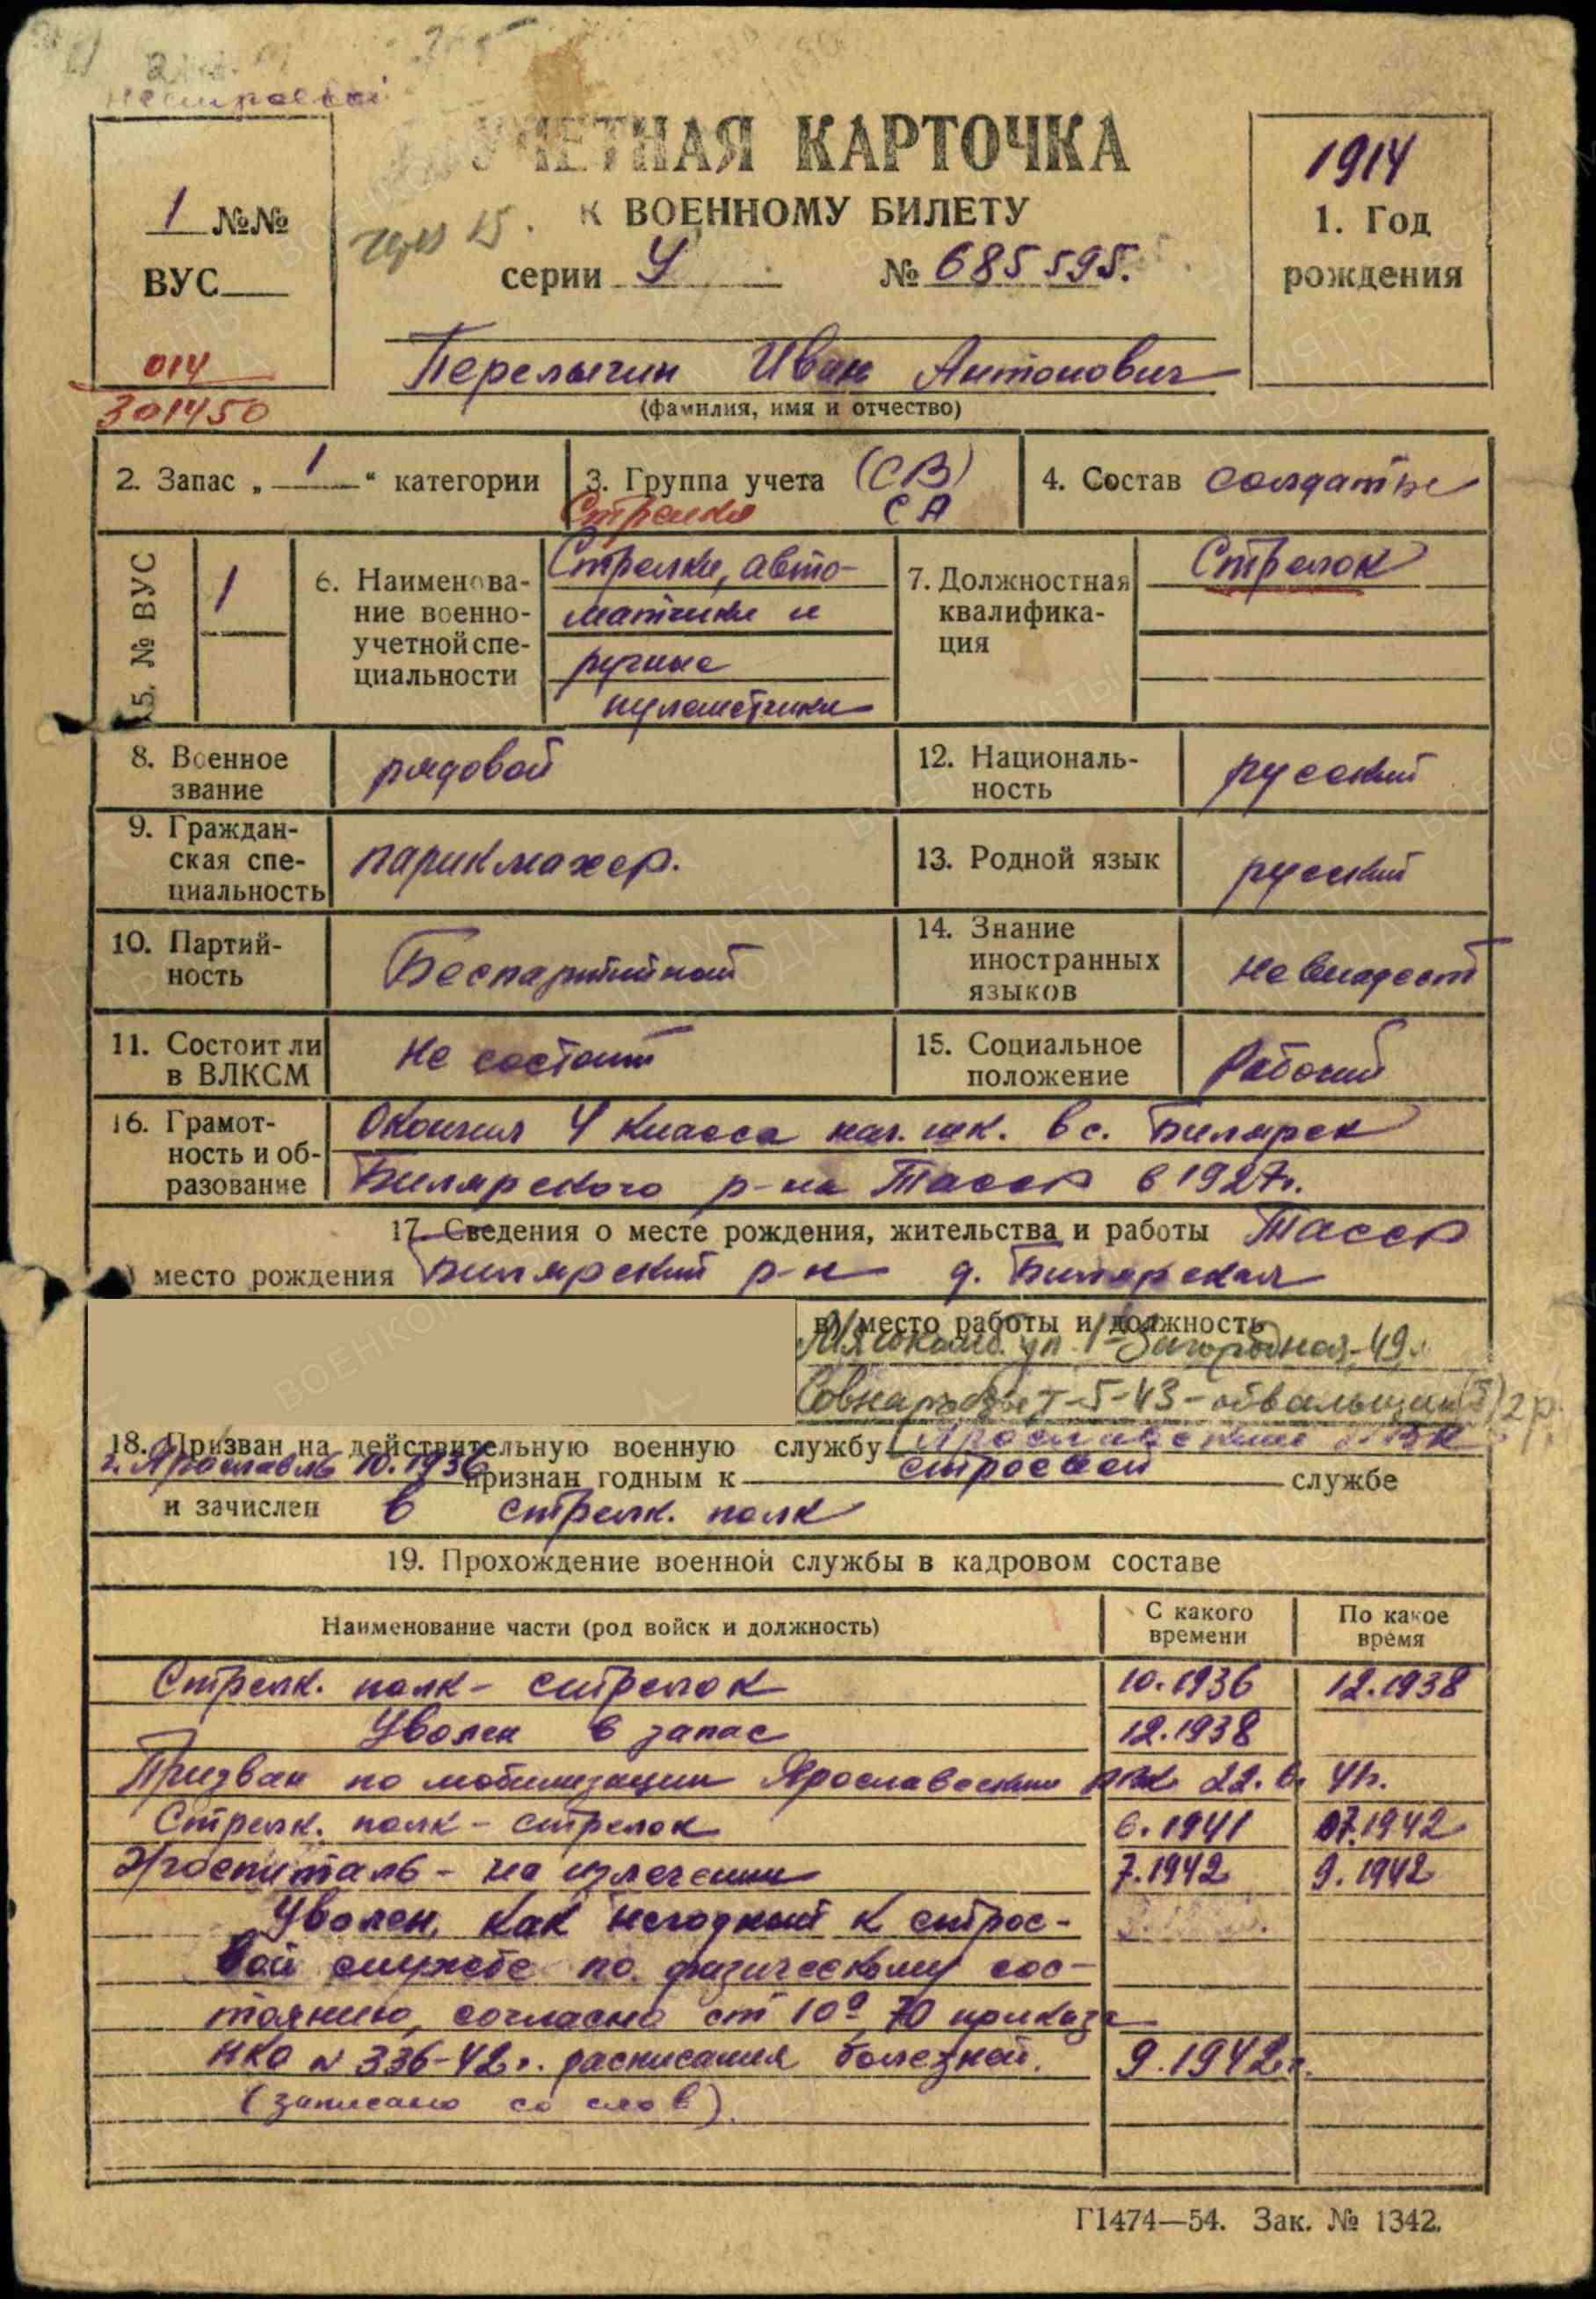 нестроевой
УЧЕТНАЯ КАРТОЧКА
К ВОЕННОМУ БИЛЕТУ
серии У № 685595.
1 №№
ВУС
014
301450
1914
1. Год
рождения
Перелыгин Иван Антонович
(фамилия, имя и отчество)
2. Запас „ 1 “ категории
3. Группа учета (СВ)
Стрелки СА
4. Состав солдаты
5. № ВУС
1
6. Наименова-
ние военно-
учетной спе-
циальности
Стрелки, авто-
матчики и
ручные
пулеметчики
7. Должностная
квалифика-
ция
Стрелок
8. Военное
звание
рядовой
12. Националь-
ность
русский
9. Граждан-
ская спе-
циальность
парикмахер.
13. Родной язык
русский
10. Партий-
ность
Беспартийный
14. Знание
иностранных
языков
не владеет
11. Состоит ли
в ВЛКСМ
не состоит
15. Социальное
положение
Рабочий
16. Грамот-
ность и об-
разование
Окончил 4 класса нач. шк. в с. Билярск
Билярского р-на Тасср в 1927г.
17. Сведения о месте рождения, жительства и работы Тасср
место рождения Билярский р-н д. Билярская
в) место работы и должность
ул. 1 Загородная, 49
5-43-
18. Призван на действительную военную службу Ярославским
г. Ярославль 10.1936 признан годным к строевой службе
и зачислен в стрелк. полк
19. Прохождение военной службы в кадровом составе
Наименование части (род войск и должность)
С какого
времени
По какое
время
Стрелк. полк - стрелок 10.1936 12.1938
Уволен в запас 12.1938
Призван по мобилизации Ярославским РВК 22.6. 41г.
Стрелк. полк - стрелок 6.1941 07.1942
Госпиталь - на излечении 7.1942 9.1942
Уволен, как негодный к строе-
вой службе по физическому сос-
тоянию, согласно ст 10а, 70 приказа
НКО № 336-42г. расписания болезней. 9.1942г.
(записано со слов).
Г1474—54. Зак. № 1342.